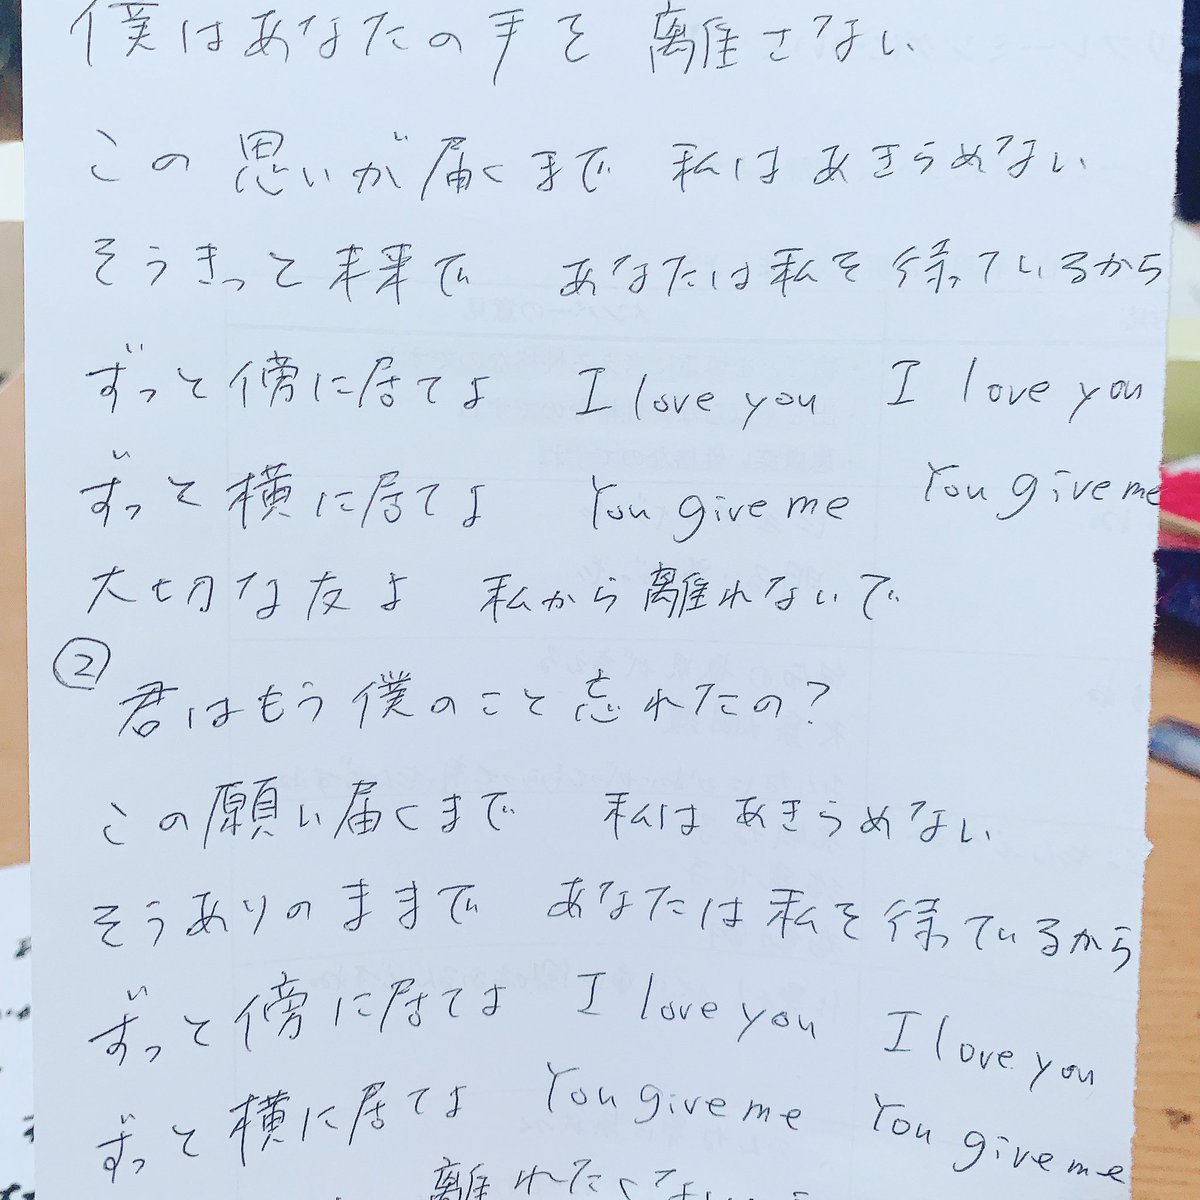 僕はあなたの手を 離さない
この思いが届くまで 私はあきらめない
そうきっと未来で あなたは私を待っているから
ずっと傍に居てよ I love you I love you
ずっと横に居てよ You give me You give me
大切な友よ 私から離れないで
② 君はもう僕のこと忘れたの?
この願い届くまで 私はあきらめない
そうありのままで あなたは私を待っているから
ずっと傍に居てよ I love you I love you
ずっと横に居てよ You give me You give me
離れたくない